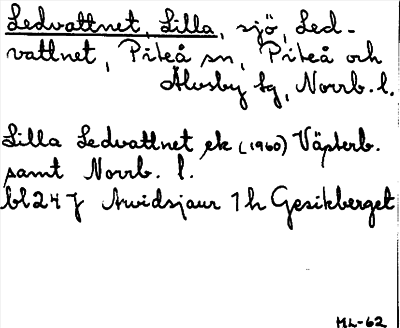 Ledvattnet, Lilla, sjö, Led-
vattnet, Piteå sn, Piteå och
Älvsby tg, Norrb. l.
Lilla Ledvattnet ek (1960) Västerb.
samt Norrb. l.
bl 24 J Arvidsjaur 1 h Gesikberget
ML-62